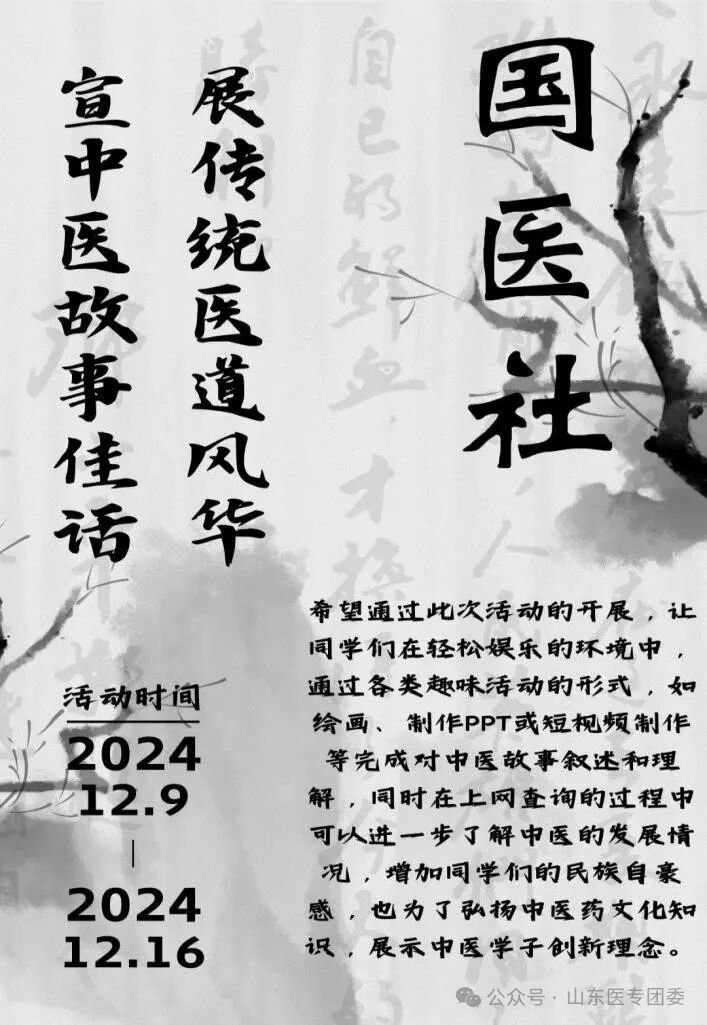 国医社
展传统医道风华
宣中医故事佳话
希望通过此次活动的开展，让
同学们在轻松娱乐的环境中，
通过各类趣味活动的形式，如
绘画、制作PPT或短视频制作
等完成对中医故事叙述和理
解，同时在上网查询的过程中
可以进一步了解中医的发展情
况，增加同学们的民族自豪
感，也为了弘扬中医药文化知
识，展示中医学子创新理念。
活动时间
2024
12.9
|
2024
12.16
自己的鲜血，才
公众号·山东医专团委